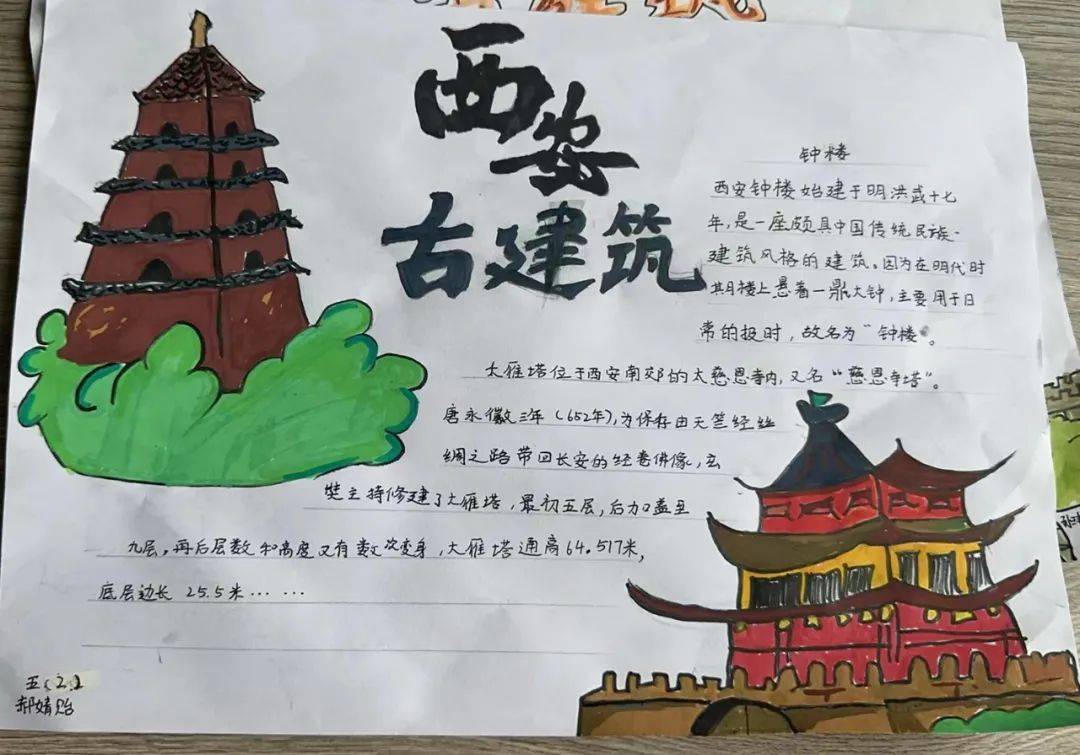 西安
古建筑
钟楼
西安钟楼始建于明洪武十七
年，是一座颇具中国传统民族
建筑风格的建筑。因为在明代时
其月楼上悬着一鼎大钟，主要用于日
常的投时，故名为“钟楼”。
大雁塔位于西安南郊的大慈恩寺内，又名“慈恩寺塔”。
唐永徽三年（652年），为保存由天竺经丝
绸之路带回长安的经卷佛像，玄
奘主持修建了大雁塔，最初五层，后加盖且
九层，再后层数和高度又有数次变身，大雁塔通高64.517米，
底层边长 25.5米… …
郝婧贻